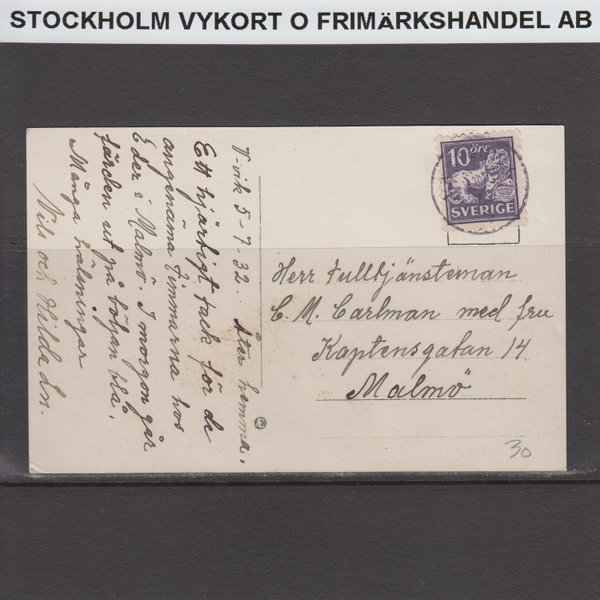 STOCKHOLM VYKORT O FRIMÄRKSHANDEL AB
V-vik 5-7-32. Åter hemma.
Ett hjärtligt tack för de
angenäma timmarna hos
Eder i Malmö. I morgon går
färden ut på böljan blå.
Många hälsningar
Nils och Hilda Ln.
10 ÖRE
SVERIGE
Herr Tulltjänsteman
C. M. Carlman med fru
Kaptensgatan 14
Malmö
30